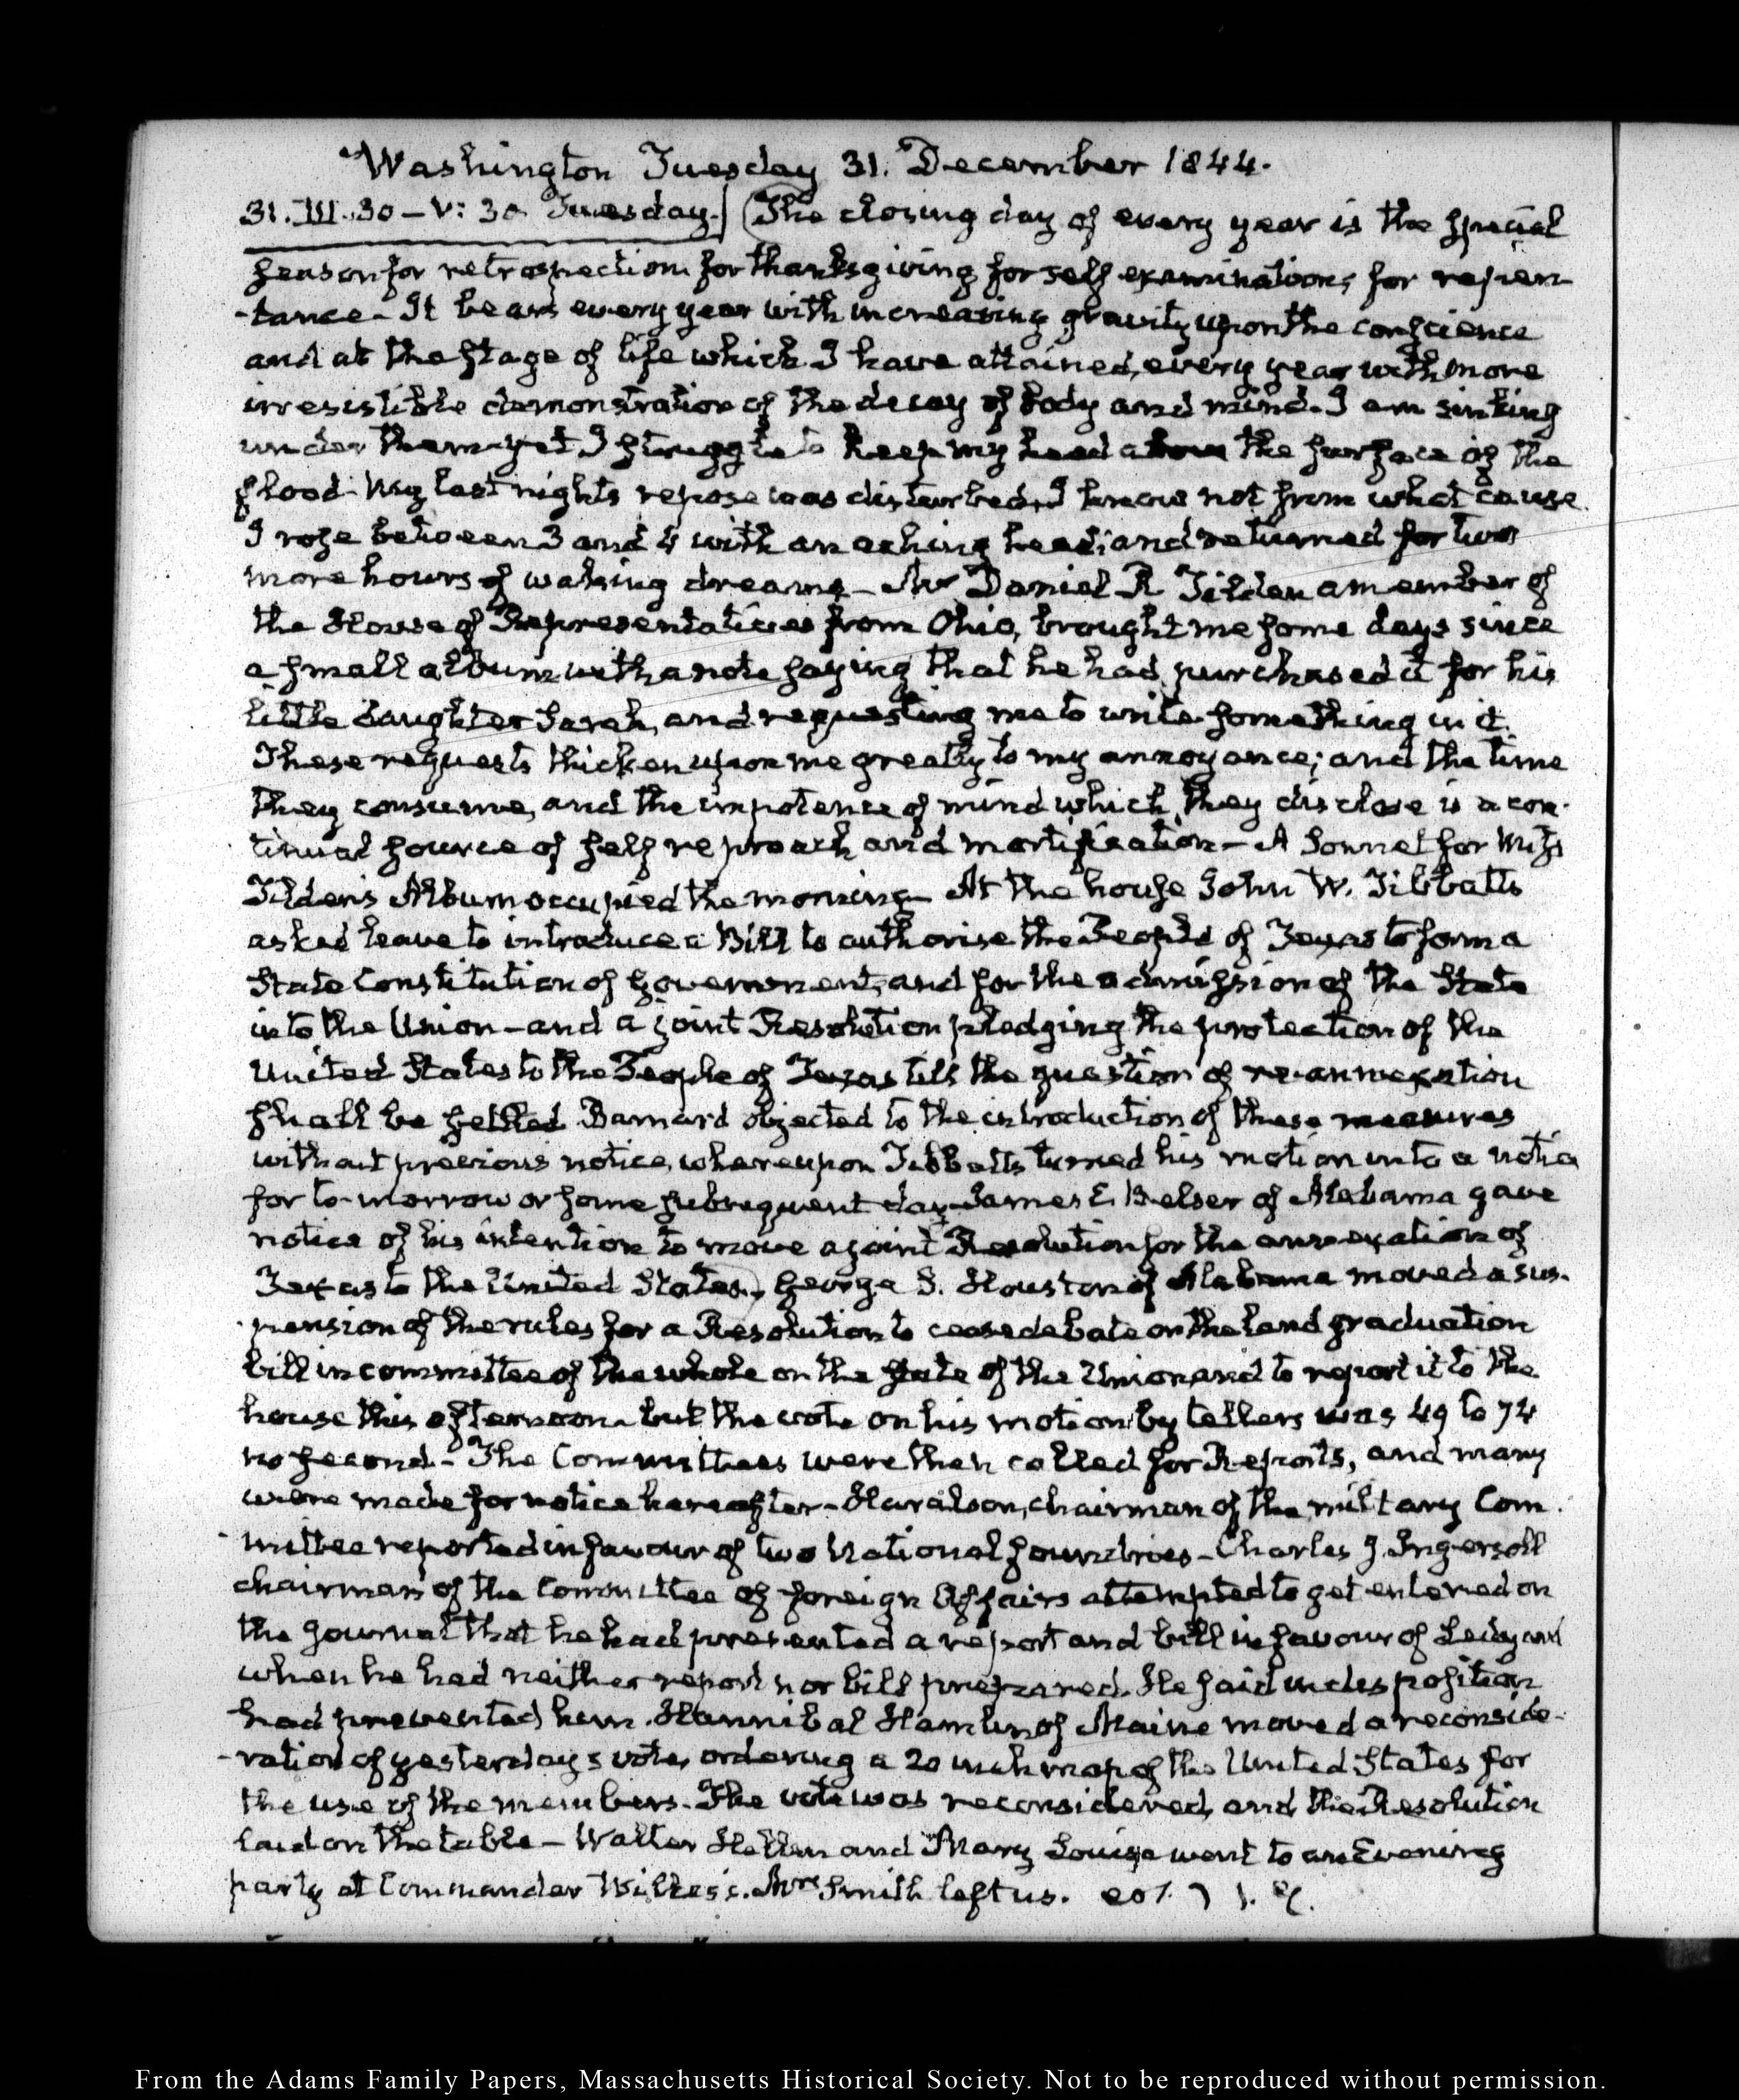 Washington Tuesday 31. December 1844.
31. III. 30 – V: 30 Tuesday.] (The closing day of every year is the special
season for retrospection for thanksgiving for self examination, for repen-
-tance – It bears every year with increasing gravity upon the conscience
and at the stage of life which I have attained, every year with more
irresistible demonstration of the decay of body and mind. I am sinking
under them yet I struggle to keep my head above the surface of the
flood. My last night's repose was disturbed, I know not from what cause.
I rose between 3 and 4 with an aching head; and returned for two
more hours of waking dreams – Mr Daniel R Tilden a member of
the House of Representatives from Ohio, brought me some days since
a small album with a note saying that he had purchased it for his
little daughter Sarah, and requesting me to write something in it.
These requests thicken upon me greatly to my annoyance; and the time
they consume, and the impotence of mind which they disclose is a con-
tinual source of self reproach and mortification – A Sonnet for Miss
Tilden's Album occupied the morning – At the house John W. Tibbatts
asked leave to introduce a Bill to authorise the People of Texas to form a
State Constitution of Government, and for the admission of the State
into the Union – and a joint Resolution pledging the protection of the
United States to the People of Texas till the question of re-annexation
shall be settled. Barnard objected to the introduction of these measures
without previous notice, whereupon Tibbatts turned his motion into a notice
for to-morrow or some subsequent day. James E. Belser of Alabama gave
notice of his intention to move a joint Resolution for the annexation of
Texas to the United States.) George S. Houston of Alabama moved a sus-
-pension of the rules for a Resolution to cease debate on the land graduation
bill in committee of the whole on the state of the Union and to report it to the
house this afternoon – but the vote on his motion by tellers was 49 to 74
no second – The Committees were then called for Reports, and many
were made for notice hereafter – Haralson, chairman of the military Com-
-mittee reported in favour of two National foundries – Charles J. Ingersoll
chairman of the Committee of foreign Affairs attempted to get entered on
the Journal that he had presented a report and bill in favour of
when he had neither report nor bill prepared. He said indisposition
had prevented him. Hannibal Hamlin of Maine moved a reconside-
-ration of yesterday's vote, ordering a 20 inch map of the United States for
the use of the members. The vote was reconsidered, and the Resolution
laid on the table – Walter Hellen and Mary Louisa went to an Evening
party at Commander Wilkes's. Mrs Smith left us.
From the Adams Family Papers, Massachusetts Historical Society. Not to be reproduced without permission.